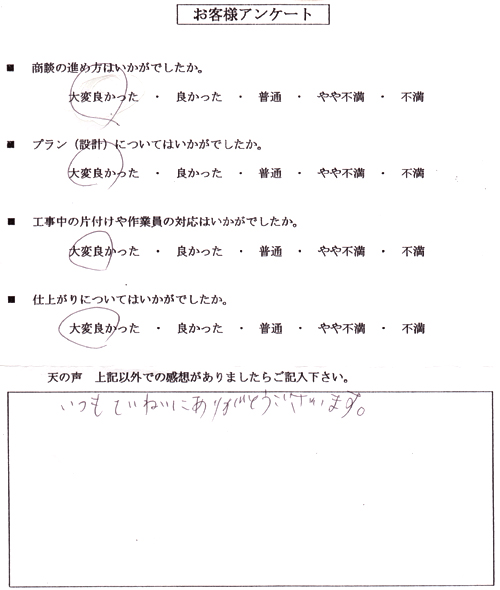 お客様アンケート
■ 商談の進め方はいかがでしたか。
大変良かった ・ 良かった ・ 普通 ・ やや不満 ・ 不満
■ プラン（設計）についてはいかがでしたか。
大変良かった ・ 良かった ・ 普通 ・ やや不満 ・ 不満
■ 工事中の片付けや作業員の対応はいかがでしたか。
大変良かった ・ 良かった ・ 普通 ・ やや不満 ・ 不満
■ 仕上がりについてはいかがでしたか。
大変良かった ・ 良かった ・ 普通 ・ やや不満 ・ 不満
天の声 上記以外での感想がありましたらご記入下さい。
いつもていねいにありがとうございます。